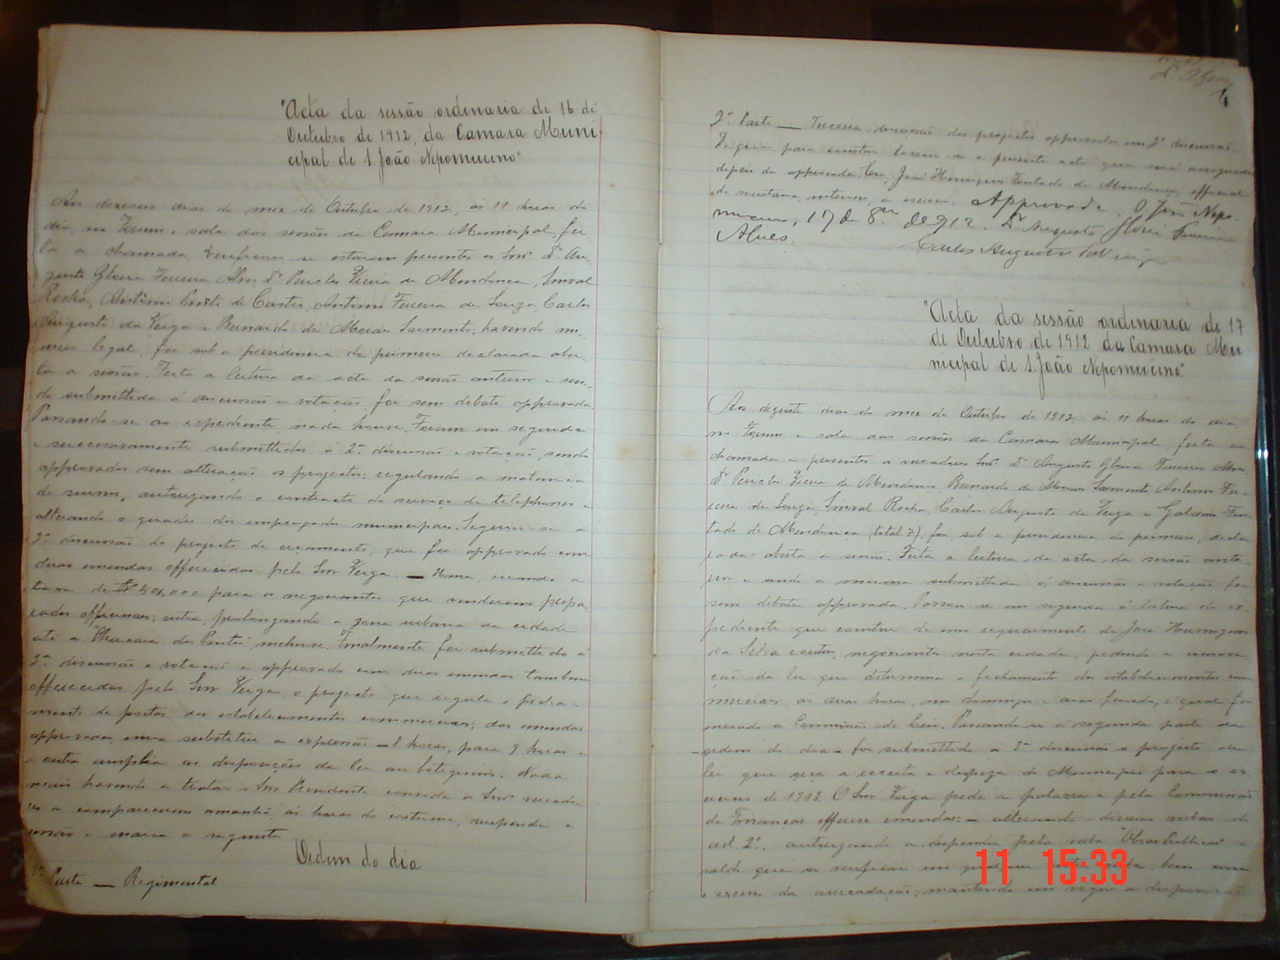 "Acta da sessão ordinaria de 16 de
Outubro de 1912, da Camara Muni
cipal de S. João Nepomuceno"
Aos dezeseis dias do mez de Outubro de 1912, ás 11 horas do
dia, no Forum e sala das sessões da Camara Municipal, fei-
ta a chamada, verificou-se estarem presentes os Snrs. Dr. Au-
gusto Gloria Ferreira Alves, Dr. Pericles Vieira de Mendonça, Sinval
Rocha, Antonio de Castro, Antonio Ferreira de Souza, Carlos
Augusto da Veiga e Bernardo de Moraes Sarmento, havendo nu-
mero legal, foi sob a presidencia do primeiro declarada aber-
ta a sessão. Feita a leitura da acta da sessão anterior e sen-
do submettida á discussão e votação, foi sem debate approvada.
Passando-se ao expediente nada houve. Foram em seguida
e successivamente submettidos á 2ª discussão e votação, sendo
approvados sem alteração os projectos: regulando a matança
de suinos, autorizando o contracto do serviço de telephones e
alterando o dos empregados municipaes. Seguiu-se a
2ª discussão do projecto de orçamento, que foi approvado com
duas emendas offerecidas pelo Snr. Veiga: — Uma, creando a
taxa de 50,000 para os negociantes que venderem prepa
rados officinaes; outra, prolongando a zona urbana da cidade
até a Chacara dos inclusive. Finalmente foi submettido á
2ª discussão e votação e approvado com duas emendas tambem
offerecidas pelo Snr. Veiga o projecto que regula o fecha-
mento de portas dos estabelecimentos commerciaes; das emendas
approvadas, uma substitue a expressão — 8 horas, para 9 horas e
a outra amplia as disposições da lei aos botequins. Nada
mais havendo a tratar o Snr. Presidente convida os Snrs. vereado
res a comparecerem amanhã, ás horas do costume, suspende a
sessão e marca a seguinte
Ordem do dia
1ª Parte — Regimental
2ª Parte — Terceira discussão dos projectos approvados em 2ª discussão.
Do que, para constar lavrou-se a presente acta que será assignada
depois de approvada. Eu, José Henriques Furtado de Mendonça, official
da secretaria, interino, a escrevi. Approvada. S. João Nepo-
muceno, 17 de 8bro de 912. Dr. Augusto Gloria Ferreira
Alves.
Carlos Augusto da Veiga
"Acta da sessão ordinaria de 17
de Outubro de 1912 da Camara Mu
nicipal de S. João Nepomuceno"
Aos dezesete dias do mez de Outubro de 1912, ás 11 horas do dia,
no Forum e sala das sessões da Camara Municipal, feita a
chamada e presentes os vereadores Snrs. Dr. Augusto Gloria Ferreira Alves,
Dr. Pericles Vieira de Mendonça, Bernardo de Moraes Sarmento, Antonio Fer-
reira de Souza, Sinval Rocha, Carlos Augusto da Veiga e Galdino Fur
tado de Mendonça (total 7), foi sob a presidencia do primeiro, decla
rada aberta a sessão. Feita a leitura da acta da sessão ante
rior e sendo a mesma submettida á discussão e votação foi
sem debate approvada. Passou-se em seguida á leitura do ex
pediente que constou de um requerimento de José
da Silva e outros, negociantes nesta cidade, pedindo a
ção da lei que determina o fechamento dos estabelecimentos com
merciaes, ás duas horas, nos domingos e dias feriados, o qual foi
enviado á Commissão de Leis. Passando-se á segunda parte da
ordem do dia — foi submettido á 3ª discussão o projecto de
lei que orça a receita e despeza do Municipio para o ex
ercicio de 1913. O Snr. Veiga pede a palavra e pela Commissão
de Finanças offerece emendas: — alterando diversas verbas do
art. 2º, autorizando a despender pela verba "Obras Publicas" o
saldo que se verificar em qualquer bem como
o excesso da arrecadação; mantendo em vigor a disposição
11 15:33